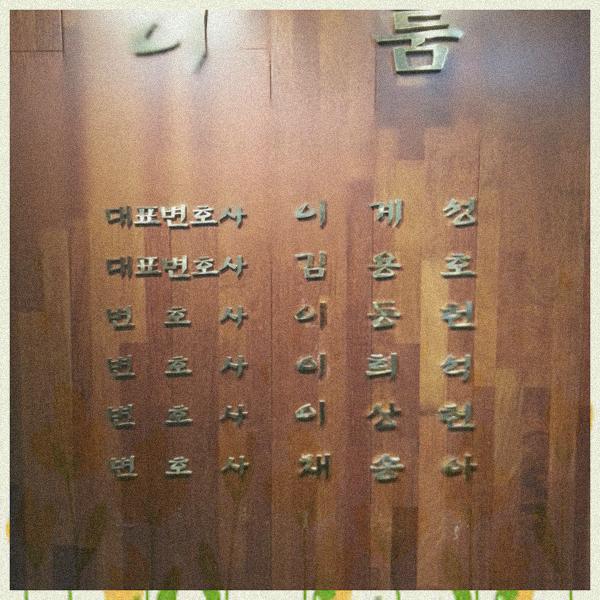 이룸
대표변호사 이계성
대표변호사 김용호
변호사 이동헌
변호사 이희석
변호사 이상헌
변호사 채송아